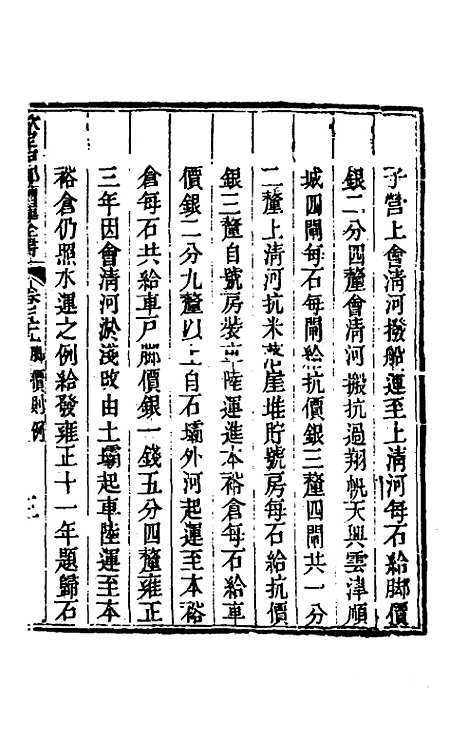 子營上會清河撥船運至上清河每石給脚價
銀二分四釐會清河搬抗過翔帆天興雲津順
城四閘每石每閘給抗價銀三釐四閘共一分
二釐上清河抗米落崖堆貯號房每石給抗價
銀三釐自號房裝車陸運進本裕倉每石給車
價銀二分九釐以上自石壩外河起運至本裕
倉每石共給車戶脚價銀一錢五分四釐雍正
三年因會清河淤淺改由土壩起車陸運至本
裕倉仍照水運之例給發雍正十一年題歸石
欽定戶部漕運全書 卷 脚價則例